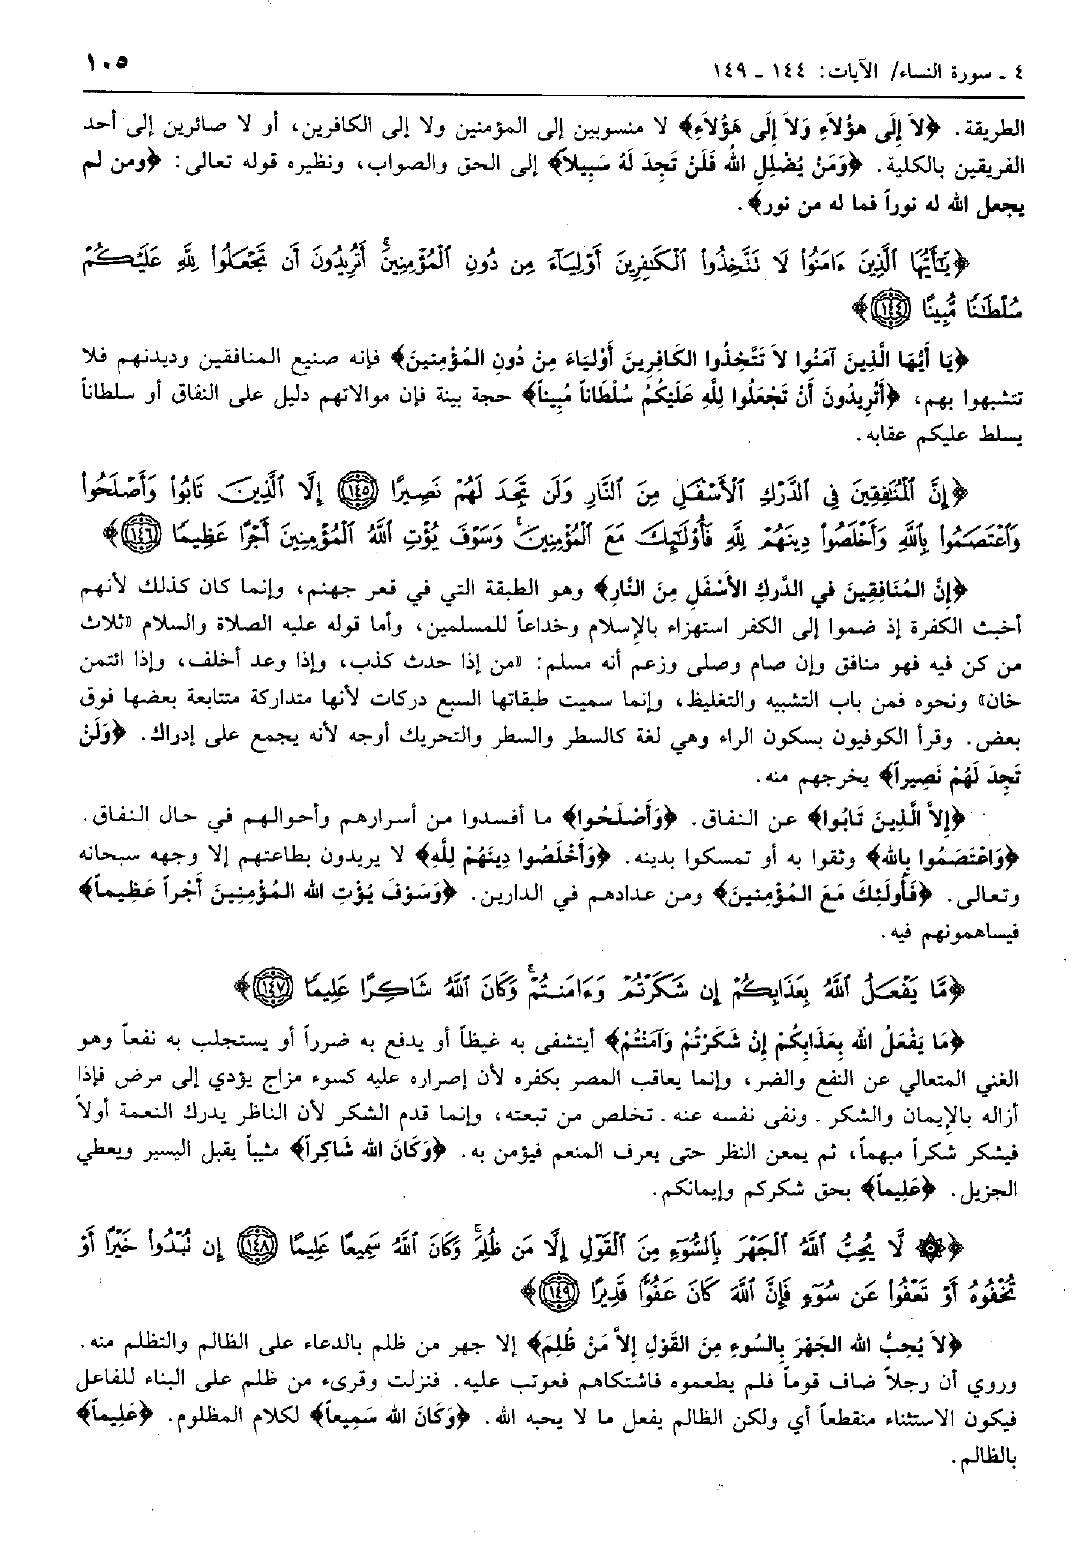 ٤ ـ سورة النساء/ الآيات: ١٤٤ ـ ١٤٩
١٠٥
الطريقة. ﴿لاَ إِلَى هؤُلاَءِ وَلاَ إِلَى هَؤُلاَءِ﴾ لا منسوبين إلى المؤمنين ولا إلى الكافرين، أو لا صائرين إلى أحد
الفريقين بالكلية. ﴿وَمَنْ يُضْلِلِ اللهُ فَلَنْ تَجِدَ لَهُ سَبِيلاً﴾ إلى الحق والصواب، ونظيره قوله تعالى: ﴿ومن لم
يجعل الله له نوراً فما له من نور﴾.
﴿يَٰٓأَيُّهَا ٱلَّذِينَ ءَامَنُوا۟ لَا تَتَّخِذُوا۟ ٱلْكَٰفِرِينَ أَوْلِيَآءَ مِن دُونِ ٱلْمُؤْمِنِينَۚ أَتُرِيدُونَ أَن تَجْعَلُوا۟ لِلَّهِ عَلَيْكُمْ
سُلْطَٰنًا مُّبِينًا ١٤٤﴾
﴿يَا أَيُّهَا الَّذِينَ آمَنُوا لاَ تَتَّخِذُوا الكَافِرِينَ أَوْلِيَاءَ مِنْ دُونِ المُؤْمِنِينَ﴾ فإنه صنيع المنافقين وديدنهم فلا
تتشبهوا بهم، ﴿أَتُرِيدُونَ أَنْ تَجْعَلُوا لِلَّهِ عَلَيْكُمْ سُلْطَاناً مُبِيناً﴾ حجة بينة فإن موالاتهم دليل على النفاق أو سلطاناً
يسلط عليكم عقابه.
﴿إِنَّ ٱلْمُنَٰفِقِينَ فِى ٱلدَّرْكِ ٱلْأَسْفَلِ مِنَ ٱلنَّارِ وَلَن تَجِدَ لَهُمْ نَصِيرًا ١٤٥ إِلَّا ٱلَّذِينَ تَابُوا۟ وَأَصْلَحُوا۟
وَٱعْتَصَمُوا۟ بِٱللَّهِ وَأَخْلَصُوا۟ دِينَهُمْ لِلَّهِ فَأُو۟لَٰٓئِكَ مَعَ ٱلْمُؤْمِنِينَۖ وَسَوْفَ يُؤْتِ ٱللَّهُ ٱلْمُؤْمِنِينَ أَجْرًا عَظِيمًا ١٤٦﴾
﴿إِنَّ المُنَافِقِينَ في الدَّرْكِ الأَسْفَلِ مِنَ النَّارِ﴾ وهو الطبقة التي في قعر جهنم، وإنما كان كذلك لأنهم
أخبث الكفرة إذ ضموا إلى الكفر استهزاء بالإسلام وخداعاً للمسلمين، وأما قوله عليه الصلاة والسلام «ثلاث
من كن فيه فهو منافق وإن صام وصلى وزعم أنه مسلم: «من إذا حدث كذب، وإذا وعد أخلف، وإذا ائتمن
خان» ونحوه فمن باب التشبيه والتغليظ، وإنما سميت طبقاتها السبع دركات لأنها متداركة متتابعة بعضها فوق
بعض. وقرأ الكوفيون بسكون الراء وهي لغة كالسطر والسطر والتحريك أوجه لأنه يجمع على إدراك. ﴿وَلَنْ
تَجِدَ لَهُمْ نَصِيراً﴾ يخرجهم منه.
﴿إِلاَّ الَّذِينَ تَابُوا﴾ عن النفاق. ﴿وَأَصْلَحُوا﴾ ما أفسدوا من أسرارهم وأحوالهم في حال النفاق.
﴿وَاعْتَصَمُوا بِالله﴾ وثقوا به أو تمسكوا بدينه. ﴿وَأَخْلَصُوا دِينَهُمْ لِلَّهِ﴾ لا يريدون بطاعتهم إلا وجهه سبحانه
وتعالى. ﴿فَأُولَئِكَ مَعَ المُؤْمِنينَ﴾ ومن عدادهم في الدارين. ﴿وَسَوْفَ يُؤْتِ الله المُؤْمِنِينَ أَجْراً عَظِيماً﴾
فيساهمونهم فيه.
﴿مَّا يَفْعَلُ ٱللَّهُ بِعَذَابِكُمْ إِن شَكَرْتُمْ وَءَامَنتُمْۚ وَكَانَ ٱللَّهُ شَاكِرًا عَلِيمًا ١٤٧﴾
﴿مَا يَفْعَلُ الله بِعَذَابِكُمْ إِنْ شَكَرْتُمْ وَآمَنْتُمْ﴾ أيتشفى به غيظاً أو يدفع به ضرراً أو يستجلب به نفعاً وهو
الغني المتعالي عن النفع والضر، وإنما يعاقب المصر بكفره لأن إصراره عليه كسوء مزاج يؤدي إلى مرض فإذا
أزاله بالإيمان والشكر ـ ونفى نفسه عنه ـ تخلص من تبعته، وإنما قدم الشكر لأن الناظر يدرك النعمة أولاً
فيشكر شكراً مبهماً، ثم يمعن النظر حتى يعرف المنعم فيؤمن به. ﴿وَكَانَ الله شَاكِراً﴾ مثيباً يقبل اليسير ويعطي
الجزيل. ﴿عَلِيماً﴾ بحق شكركم وإيمانكم.
﴿۞ لَّا يُحِبُّ ٱللَّهُ ٱلْجَهْرَ بِٱلسُّوٓءِ مِنَ ٱلْقَوْلِ إِلَّا مَن ظُلِمَۚ وَكَانَ ٱللَّهُ سَمِيعًا عَلِيمًا ١٤٨ إِن تُبْدُوا۟ خَيْرًا أَوْ
تُخْفُوهُ أَوْ تَعْفُوا۟ عَن سُوٓءٍ فَإِنَّ ٱللَّهَ كَانَ عَفُوًّا قَدِيرًا ١٤٩﴾
﴿لاَ يُحِبُّ الله الجَهْرَ بِالسُوءِ مِنَ القَوْلِ إِلاَّ مَنْ ظُلِمَ﴾ إلا جهر من ظلم بالدعاء على الظالم والتظلم منه.
وروي أن رجلاً ضاف قوماً فلم يطعموه فاشتكاهم فعوتب عليه. فنزلت وقرىء من ظلم على البناء للفاعل
فيكون الاستثناء منقطعاً أي ولكن الظالم يفعل ما لا يحبه الله. ﴿وَكَانَ الله سَمِيعاً﴾ لكلام المظلوم. ﴿عَلِيماً﴾
بالظالم.